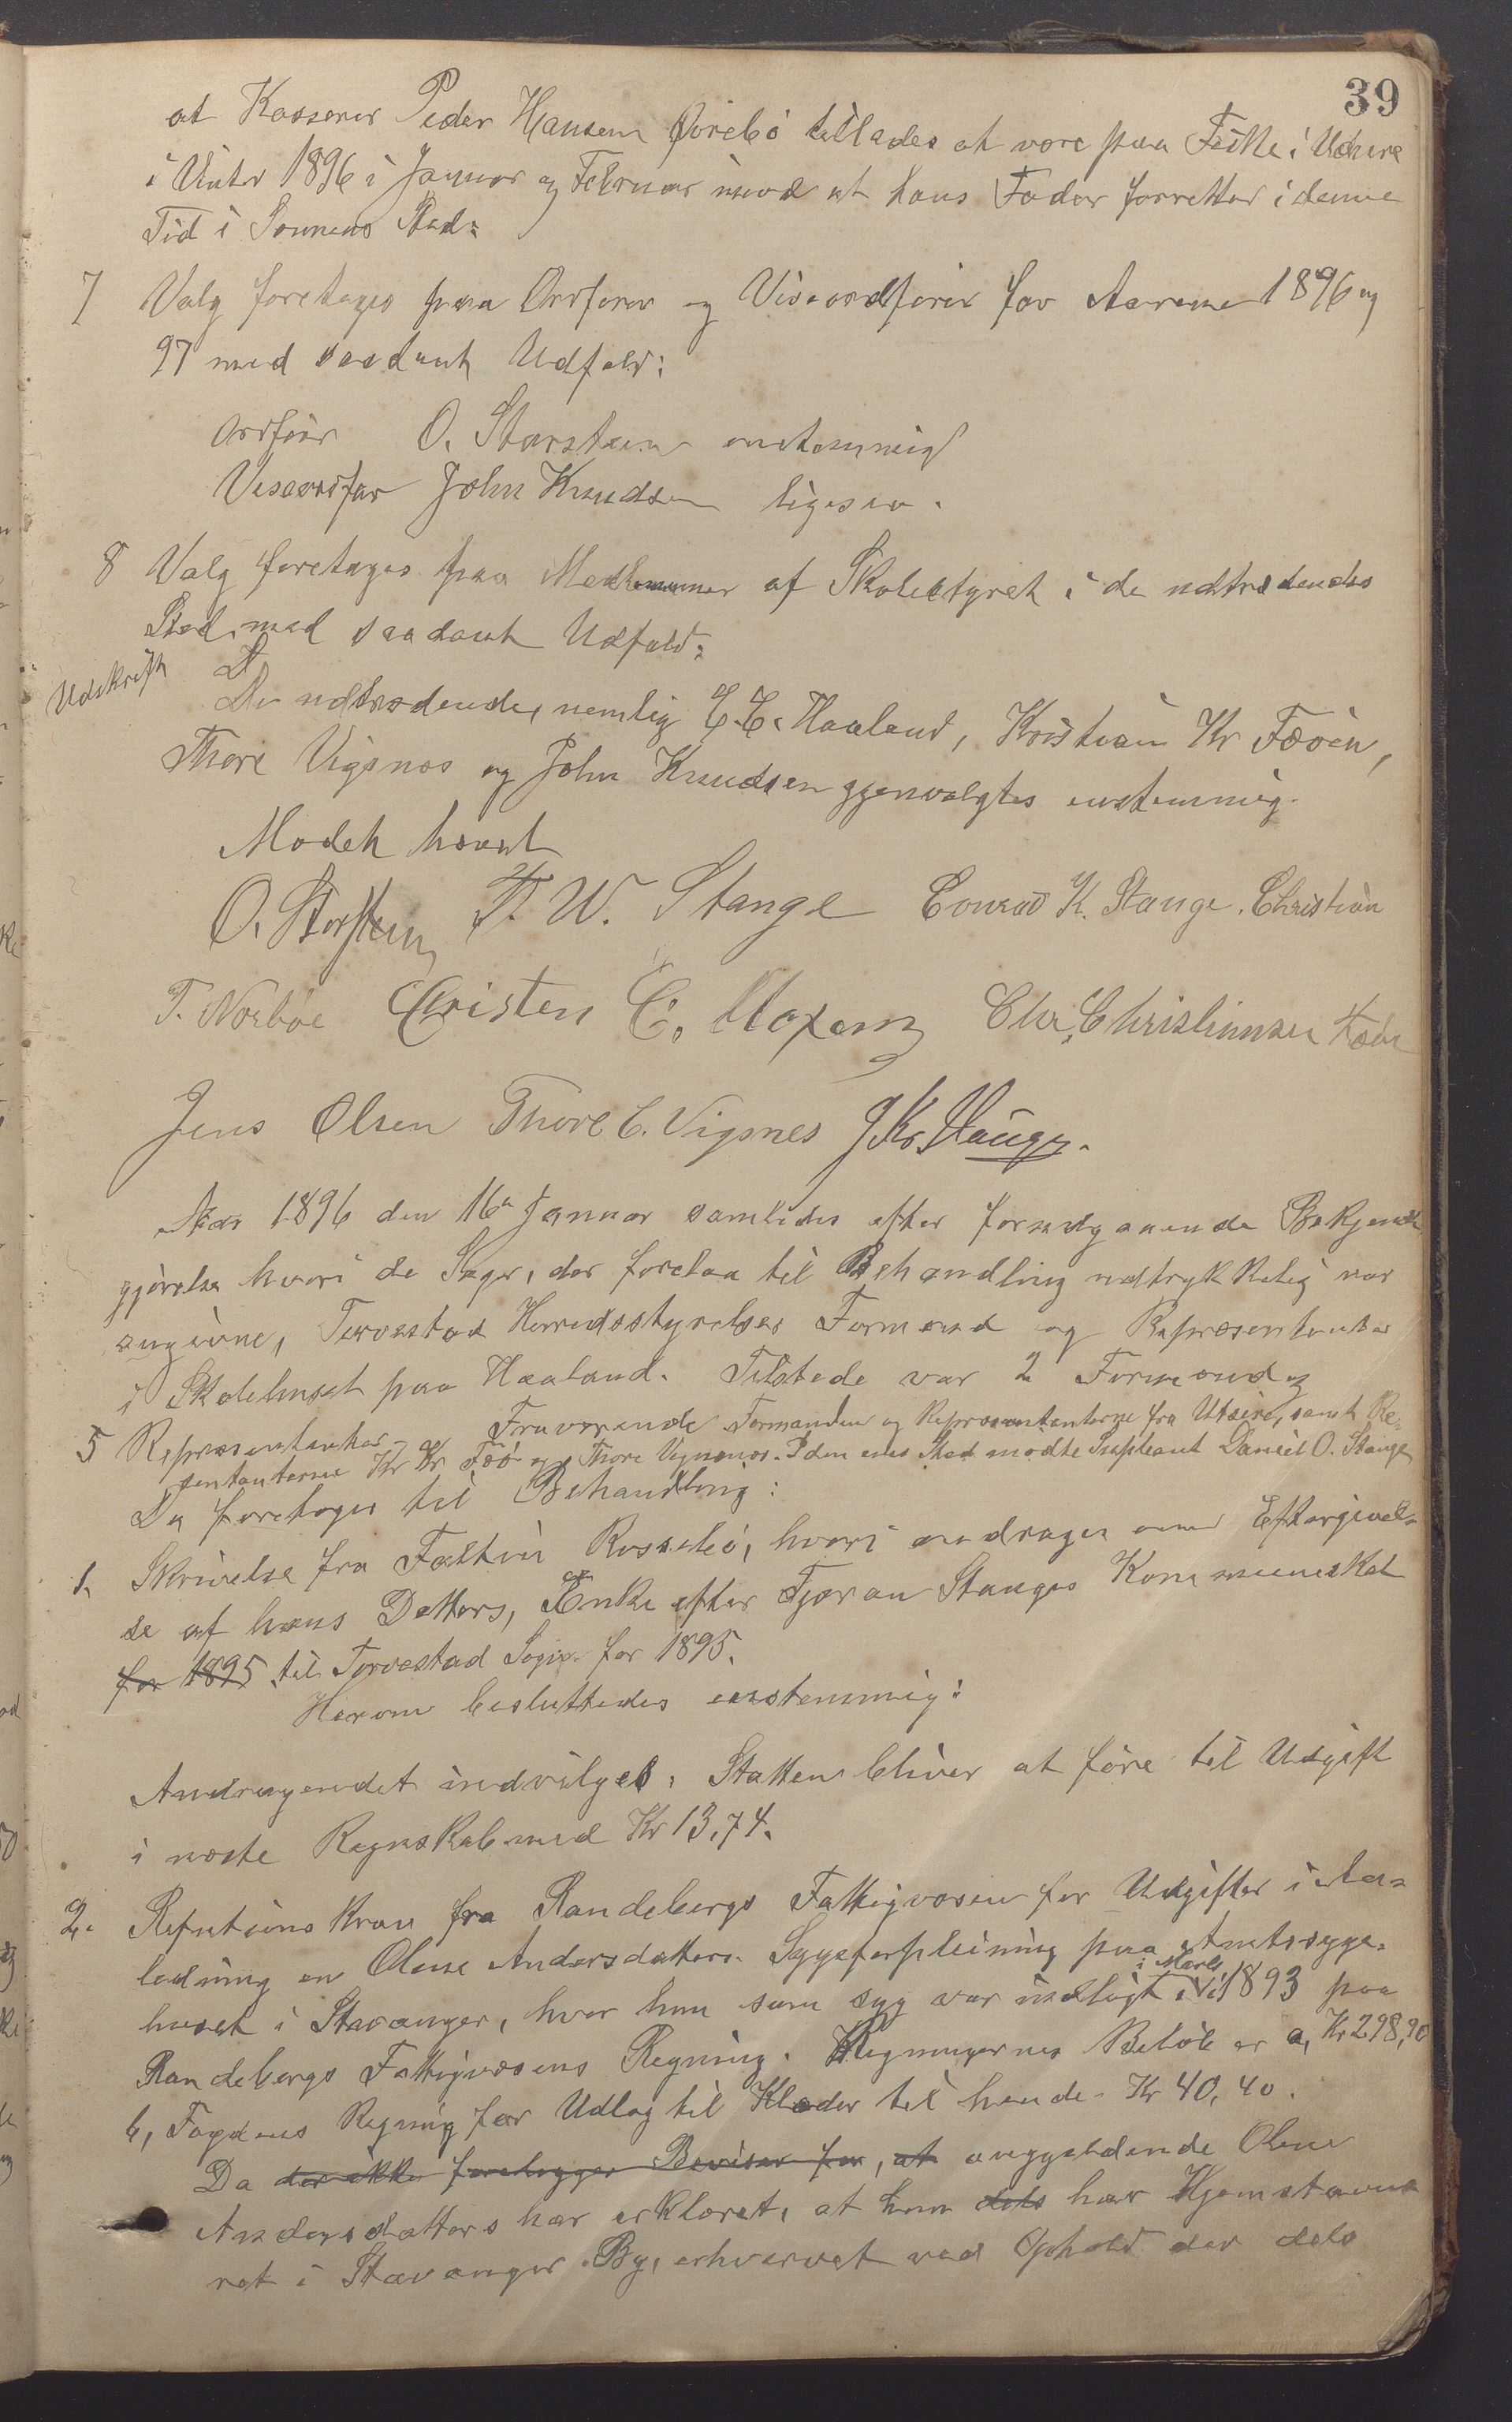 39
at Kasserer Peder Hansen Førebö tillades at være paa Fiske i Udsire
i Vinter 1896 i Januar og Februar mod at hans Fader forretter i denne
Tid i Sønnens Sted:
7 Valg foretages paa Ordfører og Viseordfører for Aarene 1896 og
97 med saadant Udfald:
Ordfører O. Storstein enstemmig
Viseordfør John Knudsen ligesaa.
8 Valg foretages paa Medlemmer af Skolestyret i de udtrædendes
Sted, med saadant Udfald:
Udskrift
De udtrædende, nemlig E. E. Haaland, Kristian Kr Fæøen,
Thore Vigsnæs og John Knudsen gjenvalgtes enstemmig.
Mødet hævet
O. Storstein T. W. Stange Conrad K. Stange. Christian
T. Norbøe Christen C. Chr. Christiansen
Jens Olsen Thore C. Vigsnes J Kr. Hauge.
Aar 1896 den 16de Januar samledes efter forudgaaende Bekjendt
gjørelse hvori de Sager, der forelaa til Behandling udtrykkelig var
angivne, Torvestad Herredsstyrelses Formænd og Repræsentanter
i Skolehuset paa Haaland. Tilstede var 2 Formænd og
5 Repræsentanter. Fraværende Formanden og Repræsentanterne fra Utsire, samt Re-
sentanterne Kr Kr Fæö og Thore Vigsnæs. I den enes Sted mødte Supleant Daniel O. Stange
Da foretages til Behandling:
1. Skrivelse fra Faltin Rossebö, hvori andrages om Eftergivel-
se af hans Datters, Enke efter Tjøran Stanges Kommuneskat
for 1895 til Torvestad Sogn for 1895.
Herom besluttedes enstemmig:
Andragendet indvilges. Skatten bliver at före til Udgift
i næste Regnskab med Kr 13,74.
2. Refutions Krav fra Randebergs Fattigvæsen for Udgifter i An-
ledning en Olene Andersdatters Sygeforpleining paa Amtssyge-
huset i Stavanger, hvor hun som syg var indlagt i Marts 1893 paa
Randebergs Fattigvæsens Regning. Regningernes Beløb er a, Kr 298,90
b, Fogdens Regning for Udlæg til Klæder til hende Kr 40,40.
Da der ikke foreligger Beviser for, at angjeldende Olene
Andersdatters har erklæret, at hun dels har Hjemstavns
ret i Stavanger By, erhvervet ved Ophold der dels